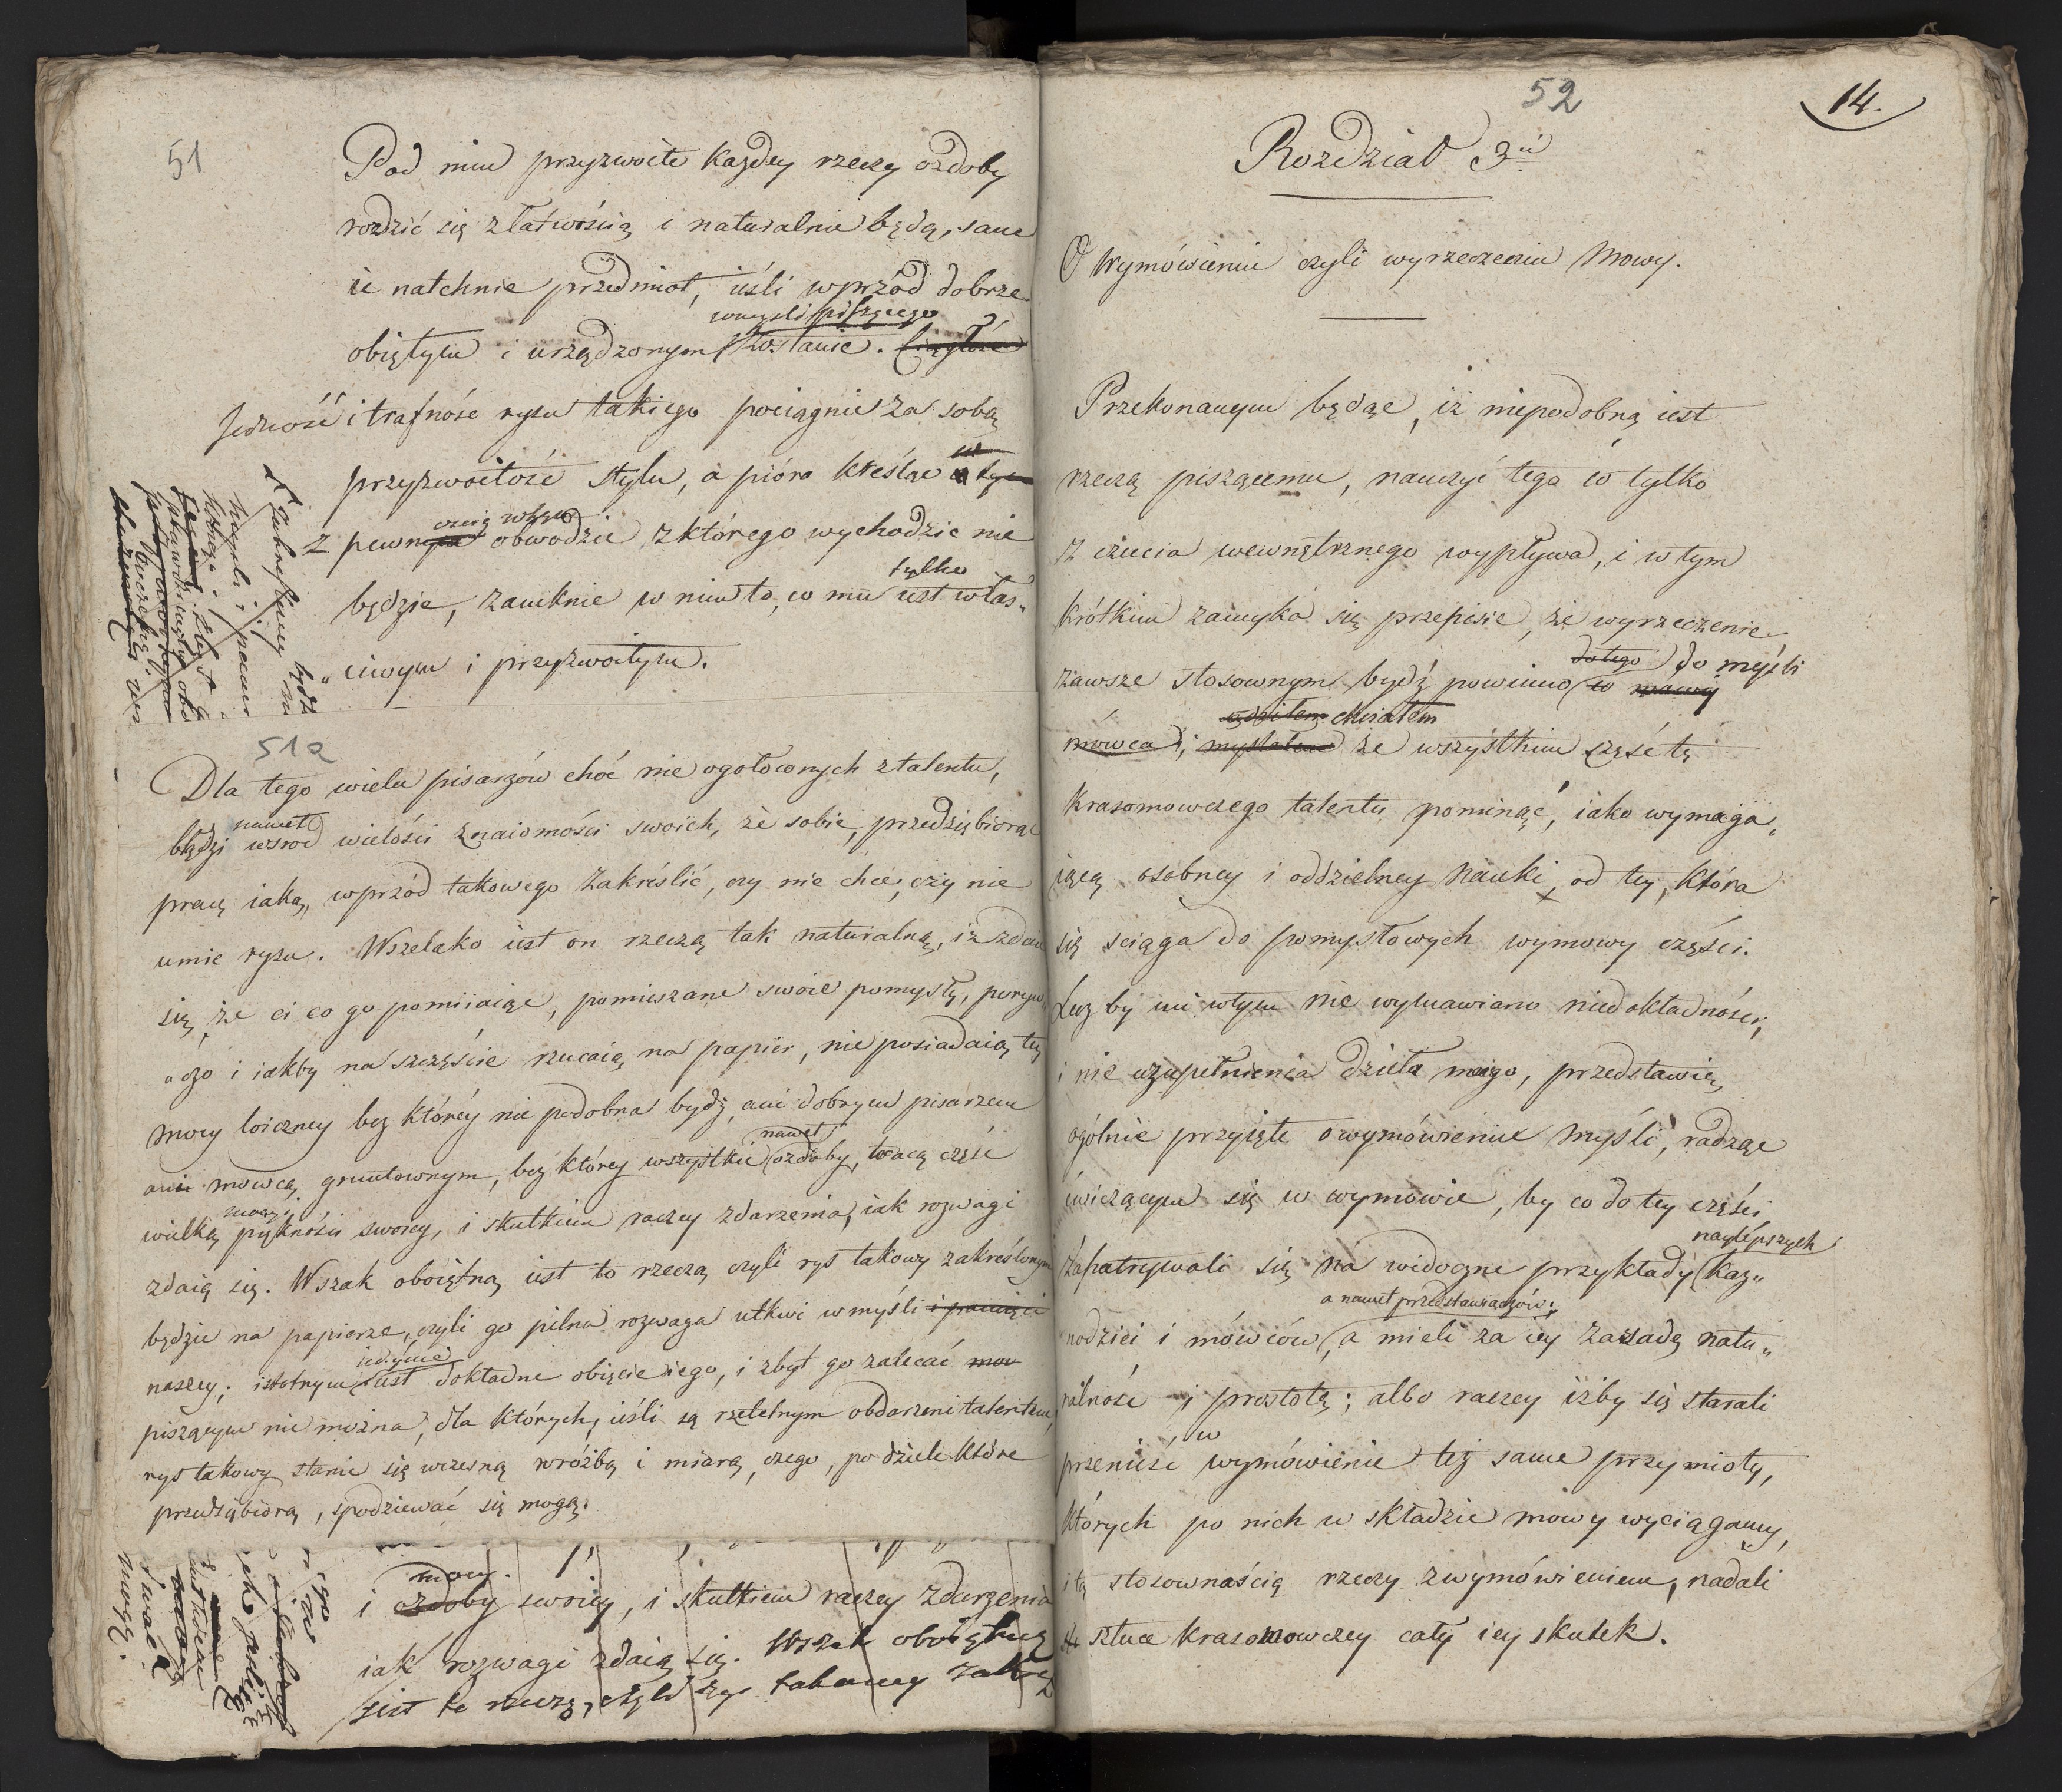 51
Pod nim przyzwoite każdey rzeczy ozdoby
rodzić się z łatwością i naturalnie będą, same
ie natchnie przedmiot, iesli wprzód dobrze
w myśli piszącego
obiętym i urządzonym zostanie. Ciągłość
Jedność i trafność rysu takiego pociągnie za sobą
przyzwoitość stylu, a pióro kreśląc w tym
z pewnym obwodzie z którego wychodzić nie
tylko
będzie, zamknie w nim to, co mu iest włas„
„ciwym i przyzwoitym.
51a
Dla tego wielu pisarzów choć nie ogołoconych z talentu,
nawet
błądzi wsrod wielości znaiomości swoich, że sobie, przedsiębiorąc
pracę iaką, wprzód takowego zakreślić, czy nie chce, czy nie
umie rysu. Wszelako iest on rzeczą tak naturalną, iż zdaie
się, że ci co go pomiiaiąc, pomieszane swoie pomysły, poryw„
„czo i iakby na szczęście rzucaią na papier, nie posiadaią tey
mocy loiczney bez którey nie podobna bydź, ani dobrym pisarzem
nawet
ani mowcą gruntownym, bez którey wszystkie ozdoby, tracą część
mocy i
wielką piękności swoiey, i skutkiem raczey zdarzenia, iak rozwagi
zdaią się. Wszak oboiętną iest to rzeczą czyli rys takowy zakreślonym
będzie na papierze, czyli go pilna rozwaga utkwi w myśli i pamięci
iedynie
naszey; istotnym iest dokładne obięcie iego, i zbyt go zalecać
piszącym nie można, dla których, ieśli są rzetelnym obdarzeni talentem,
rys takowy stanie się wczesną wróżbą i miarą, czego, po dziele które
przedsiębiorą, spodziewać się mogą.
mocy
i ozdoby swoiey, i skutkiem raczey zdarzenia
iak rozwagi zdaią się. Wszak oboiętną
iest to rzeczą, czyli rys takowy
52
14.
Rozdział 3ci
O Wymówieniu czyli wyrzeczeniu Mowy.
Przekonanym będąc, iż niepodobną iest
rzeczą piszącemu, nauczyć tego co tylko
z czucia wewnętrznego wypływa, i w tym
krótkim zamyka się przepisie, że wyrzeczenie
do tego do myśli
zawsze stosownym bydź powinno co mowy
chciałem
mówca i; myślałem ze wszystkim część tę
krasomowczego talentu pominąć, iako wymaga„
iącą osobney i oddzielney Nauki, od tey, która
się ściąga do pomysłowych wymowy części.
Lecz by mi w tym nie wymawiano niedokładności,
i nie uzupełnienia dzieła moiego, przedstawię,
ogólnie przyięte o wymówieniu myśli, radząc
ćwiczącym się w wymowie, by co do tey części
naylépszych
zapatrywali się na widoczne przykłady Kaz„
a nawet przedstawiaczów;
nodziei i mówców, a mieli za iey zasadę natu„
ralność i prostotę; albo raczey iżby się starali
w
przenieść wymówienie też same przymioty,
których po nich w składzie mowy wyciągamy,
i tą stosownością rzeczy z wymówieniem, nadali
sztuce krasomowczey cały iey skutek.